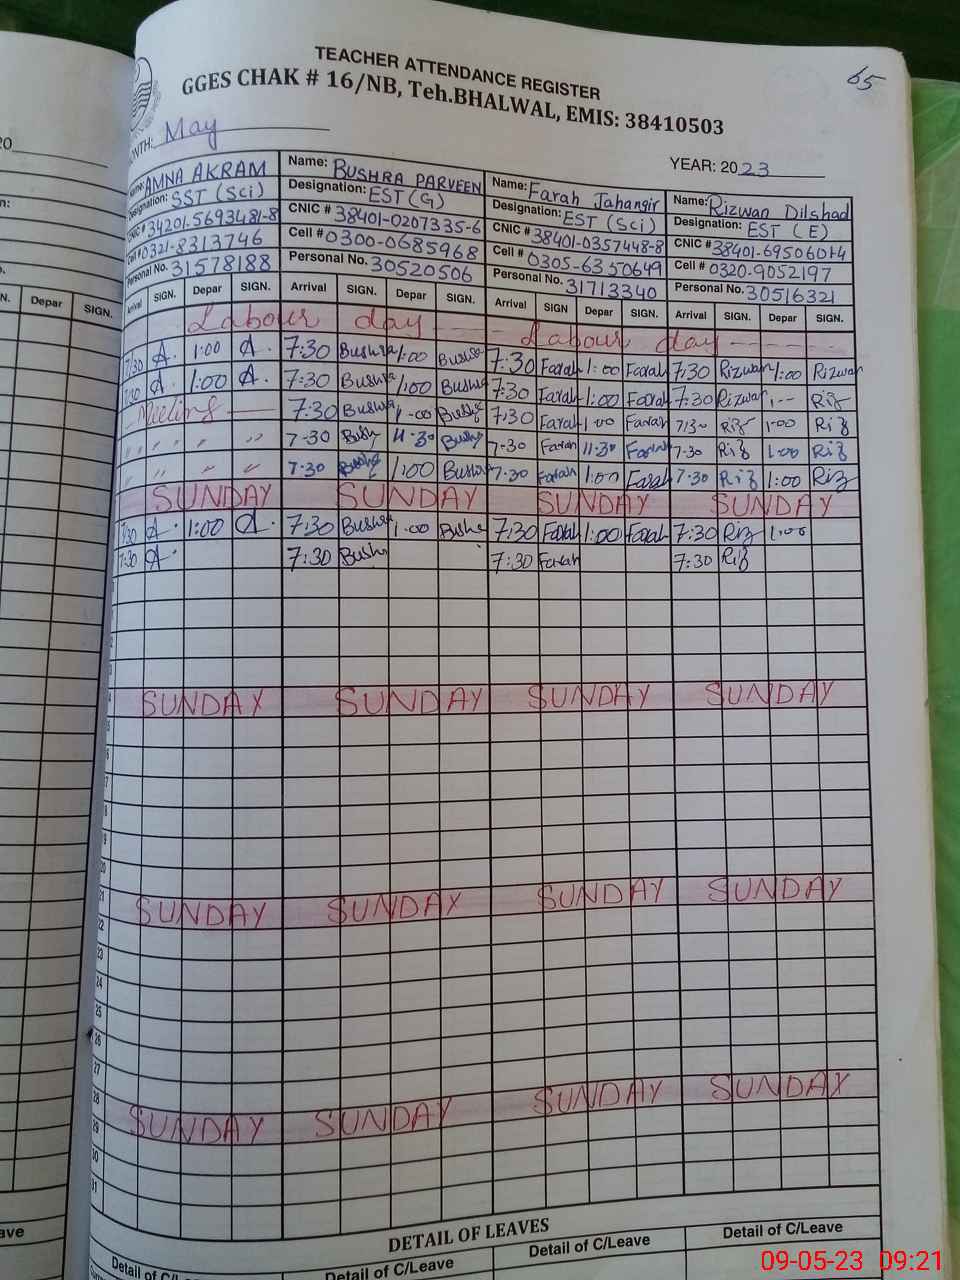 TEACHER ATTENDANCE REGISTER
65
GGES CHAK # 16/NB, Teh.BHALWAL, EMIS: 38410503
ONTH: May
YEAR: 2023
Name: AMNA AKRAM Name: BUSHRA PARVEEN Name: Farah Jahangir Name: Rizwan Dilshad
Designation: SST (Sci) Designation: EST (G) Designation: EST (Sci) Designation: EST (E)
CNIC # 34201-5693481-8 CNIC # 38401-0207335-6 CNIC # 38401-0357448-8 CNIC # 38401-6950601-4
Cell # 0321-8313746 Cell # 0300-0685968 Cell # 0305-6350649 Cell # 0320-9052197
Personal No. 31578188 Personal No. 30520506 Personal No. 31713340 Personal No. 30516321
N. Depar SIGN.
rival SIGN. Depar SIGN. Arrival SIGN. Depar SIGN. Arrival SIGN Depar SIGN. Arrival SIGN. Depar SIGN.
Labour day Labour day
7:30 A. 1:00 A. 7:30 Bushra 1:00 Bushra 7:30 Farah 1:00 Farah 7:30 Rizwan 1:00 Rizwan
7:30 A. 1:00 A. 7:30 Bushra 1:00 Bushra 7:30 Farah 1:00 Farah 7:30 Rizwan Riz
Meeting 7:30 Bushra 1:00 Bushra 7:30 Farah 1:00 Farah 7:30 Riz 1:00 Riz
" " " " 7-30 Bush 11-30 Bush 7-30 Farah 11-30 Farah 7-30 Riz 1:00 Riz
" " " 7-30 Bushra 1:00 Bushra 7-30 Farah 1:00 Farah 7-30 Riz 1:00 Riz
SUNDAY SUNDAY SUNDAY SUNDAY
7:30 A. 1:00 A. 7:30 Bushra 1:00 Bushra 7:30 Farah 1:00 Farah 7:30 Riz 1:00
7:30 A. 7:30 Bush 7:30 Farah 7:30 Riz
SUNDAY SUNDAY SUNDAY SUNDAY
20
21 SUNDAY SUNDAY SUNDAY SUNDAY
22
23
24
25
26
27
28 SUNDAY SUNDAY SUNDAY SUNDAY
29
30
31
DETAIL OF LEAVES
Detail of C/Leave Detail of C/Leave Detail of C/Leave
09-05-23 09:21